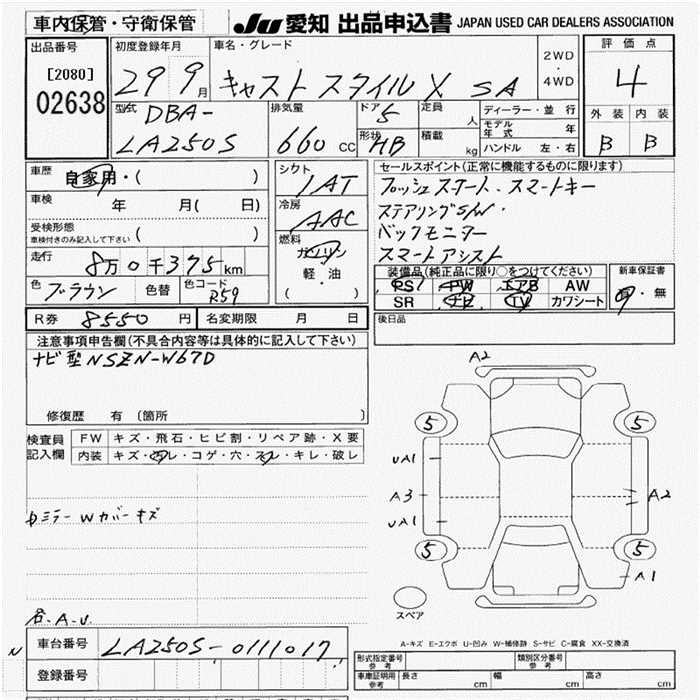 車内保管・守衛保管
JU 愛知 出品申込書 JAPAN USED CAR DEALERS ASSOCIATION
出品番号
[2080]
02638
初度登録年月
29 9月
車名・グレード
キャスト スタイル X SA
2WD
・
4WD
評価点
4
外装 内装
B B
型式
DBA-
LA250S
排気量
660 CC
ドア 5
形状 HB
定員 人
積載 kg
ディーラー・並行
モデル年式 年
ハンドル 左・右
車歴
自家用・( )
車検 年 月( 日)
受検形態
車検付きのみ記入して下さい ( )
走行
8万0千375km
色 ブラウン 色替 色コード R59
シフト
IAT
冷房
AAC
燃料
ガソリン
軽・油
( )
セールスポイント(正常に機能するものに限ります)
プッシュスタート、スマートキー
ステアリングS/W・
バックモニター
スマートアシスト
装備品(純正品に限り○をつけてください)
PS PW エアB AW
SR ナビ TV カワシート
新車保証書
有・無
R券 8550円 名変期限 月 日
後日品
注意事項申告欄(不具合内容等は具体的に記入して下さい)
ナビ型NSZN-W67D
修復歴 有 (箇所 )
検査員
記入欄
FW キズ・飛石・ヒビ割・リペア跡・X要
内装 キズ・汚レ・コゲ・穴・スレ・キレ・破レ
ミラーWカバーキズ
A2
5 5
UA1
A3 A2
UA1
5 5
A1
スペア
A-キズ E-エクボ U-凹み W-補修跡 S-サビ C-腐食 XX-交換済
車台番号 LA250S-0111017
登録番号
形式指定番号 参考 類別区分番号 参考
車庫証明用 参考 長さ cm 幅 cm 高さ cm